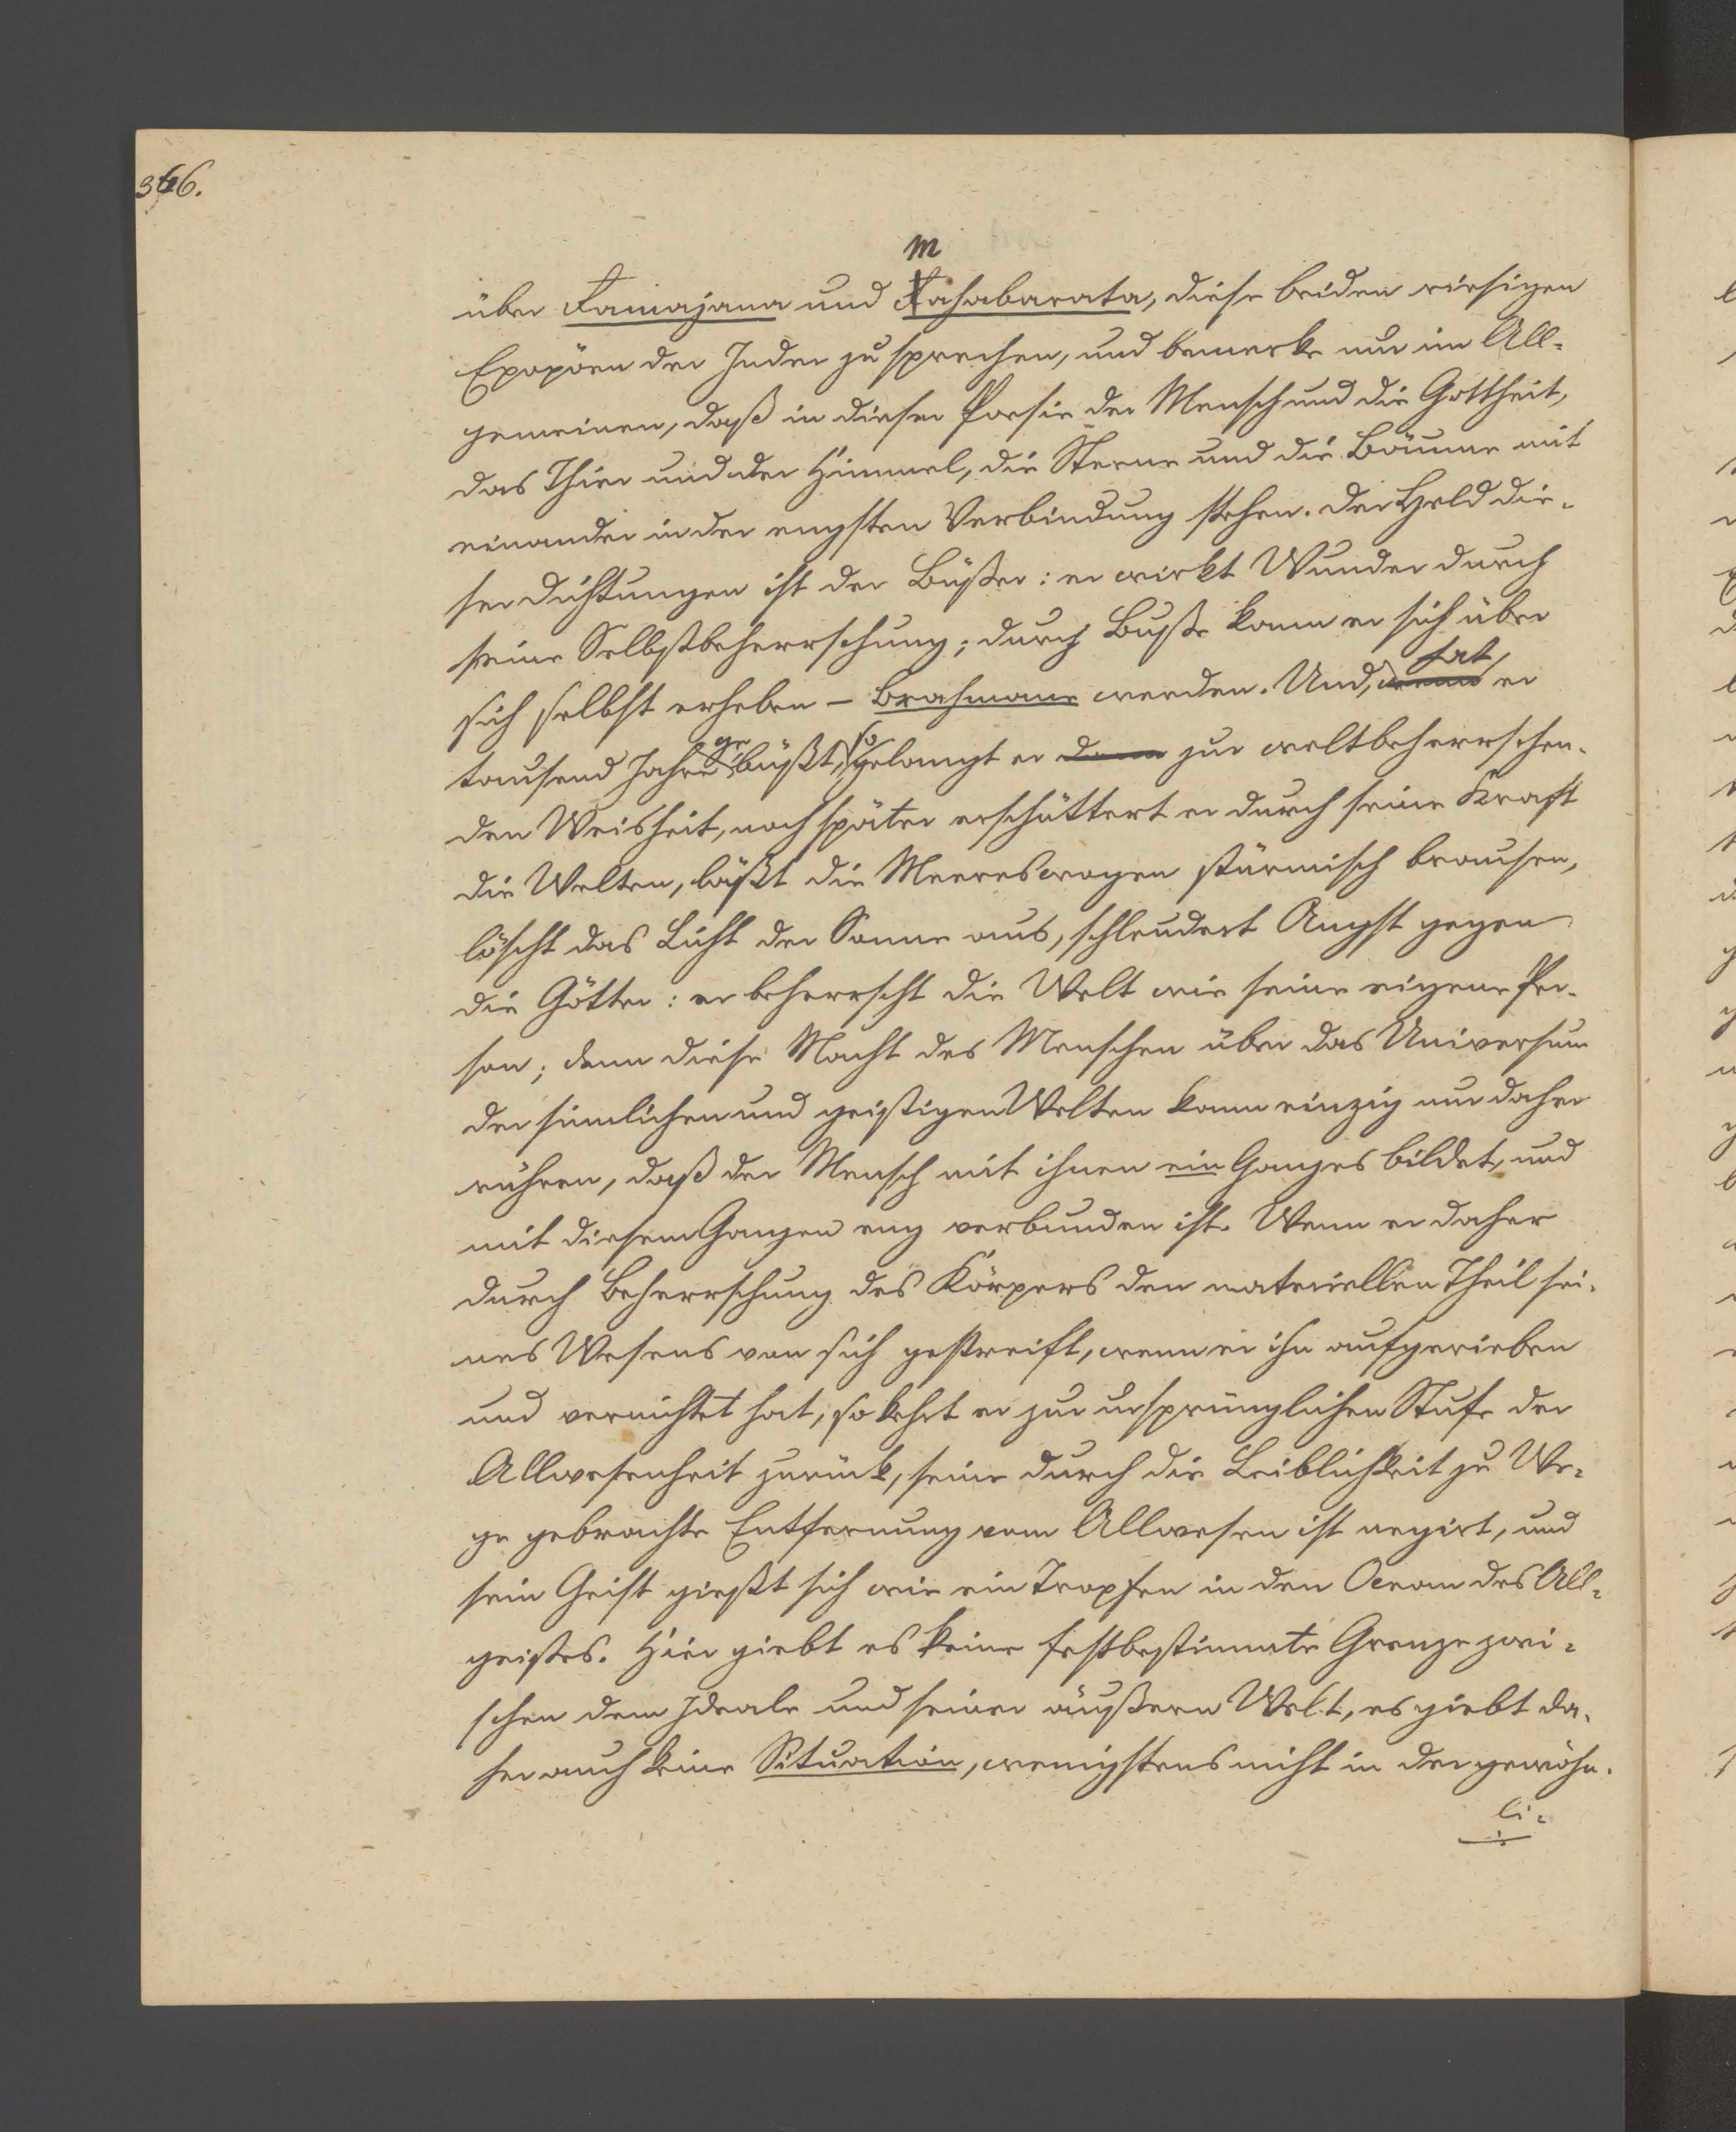 346.
m
über Famajana und Fahabarata, diese beiden riesigen
Expopöen der Inder zu sprechen, und bemerke nur im All-
gemeinen, daß in dieser Poesie der Mensch und die Gottheit,
das Thier und der Himmel, die Sterne und die Bäume mit
einander in der engsten Verbindung stehen. Der Held die-
ser Dichtungen ist der Büßer: er wirkt Wunder durch
seine Selbstbeherrschung; durch Buße kann er sich über
hat
sich selbst erheben – Brahmane werden. Und, wenn er
ge so
tausend Jahre büßt, gelangt er dann zur weltbeherrschen-
den Weisheit, noch später erschüttert er durch seine Kraft
die Welten, läßt die Meereswogen stürmisch brausen,
löscht das Licht der Sonne aus, schleudert Angst gegen
die Götter: er beherrscht die Welt wie seine eigene Per-
son; denn diese Macht des Menschen über das Universum
der sinnlichen und geistigen Welten kann einzig nur daher
rühren, daß der Mensch mit ihnen ein Ganzes bildet, und
mit diesem Ganzen eng verbunden ist. Wenn er daher
durch Beherrschung des Körpers den materiellen Theil sei-
nes Wesens von sich gestreift, wenn er ihn aufgerieben
und vernichtet hat, so kehrt er zur ursprünglichen Stufe der
Allwesenheit zurück, seine durch die Leiblichkeit zu We-
ge gebrachte Entfernung vom Allwesen ist negirt, und
sein Geist gießt sich wie ein Tropfen in den Ocean des All-
geistes. Hier giebt es keine festbestimmte Grenze zwi-
schen dem Ideale und seiner äußern Welt, es giebt da-
her auch keine Situation, wenigstens nicht in der gewöhn-
li-